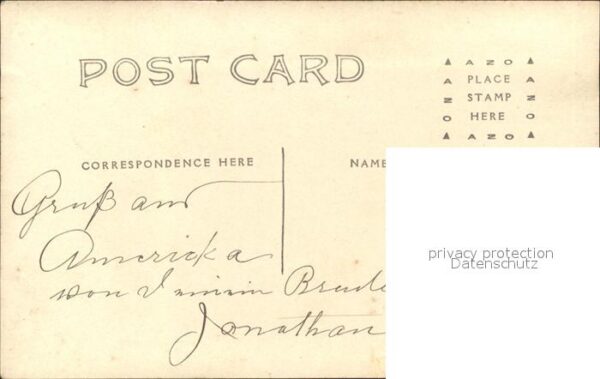 POST CARD
▲ AZO ▲
PLACE
STAMP
HERE
▲ AZO ▲
CORRESPONDENCE HERE
NAME
Gruß aus
Americka
von
Jonathan
privacy protection
Datenschutz